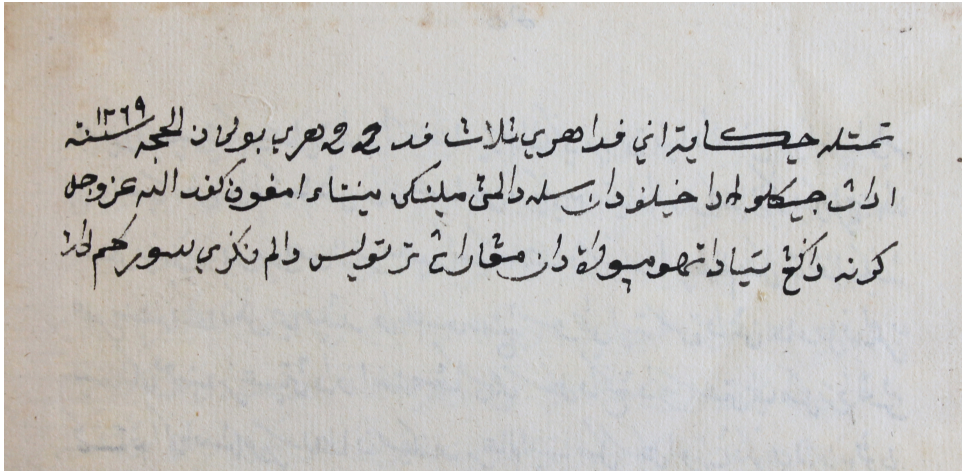 تمتله حكاية اني فد اهري ثلاث فد 22 هري بولن الحجه سنة ١٢٦٩
اداڽ جيكلو اد خيلف دان سله دالمڽ ملينكن مينتاء امفون كفد الله عزوجل
كرنه داكڠ تياد تاهو ميورة دان مڠارڠ ترتوليس دالم نكري